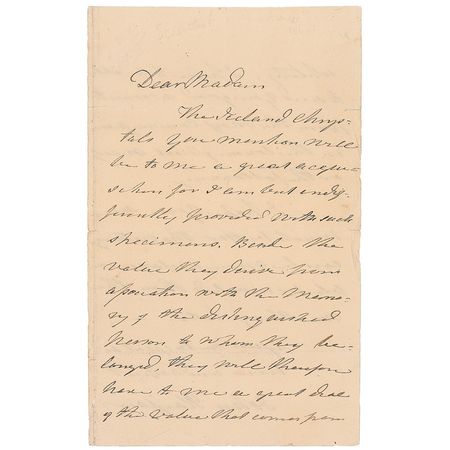 Dear Madam
The Iceland Chrys-
tals you mention will
be to me a great acqui-
sition for I am but indif-
ferently provided with such
specimens. Beside the
value they derive from
association with the Memo-
ry of the distinguished
Person to whom they be-
longed, they will therefore
have to me a great deal
of the value that comes from